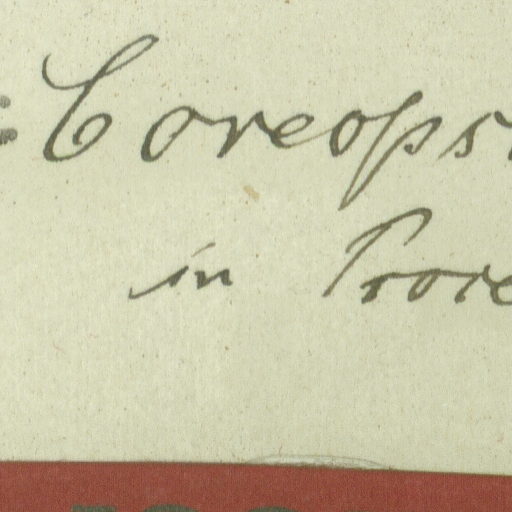 = Coreops
in Prove